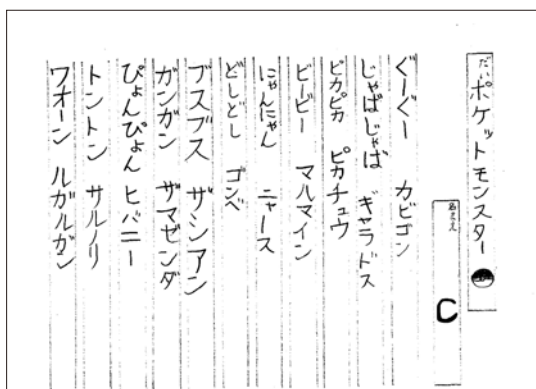 だい ポケットモンスター
なまえ C
ぐーぐー カビゴン
じゃばじゃば ギャラドス
ピカピカ ピカチュウ
ビービー マルマイン
にゃんにゃん ニャース
どしどし ゴンベ
ブスブス ザシアン
ガンガン ザマゼンダ
ぴょんぴょん ヒバニー
トントン サルノリ
ワオーン ルガルガン